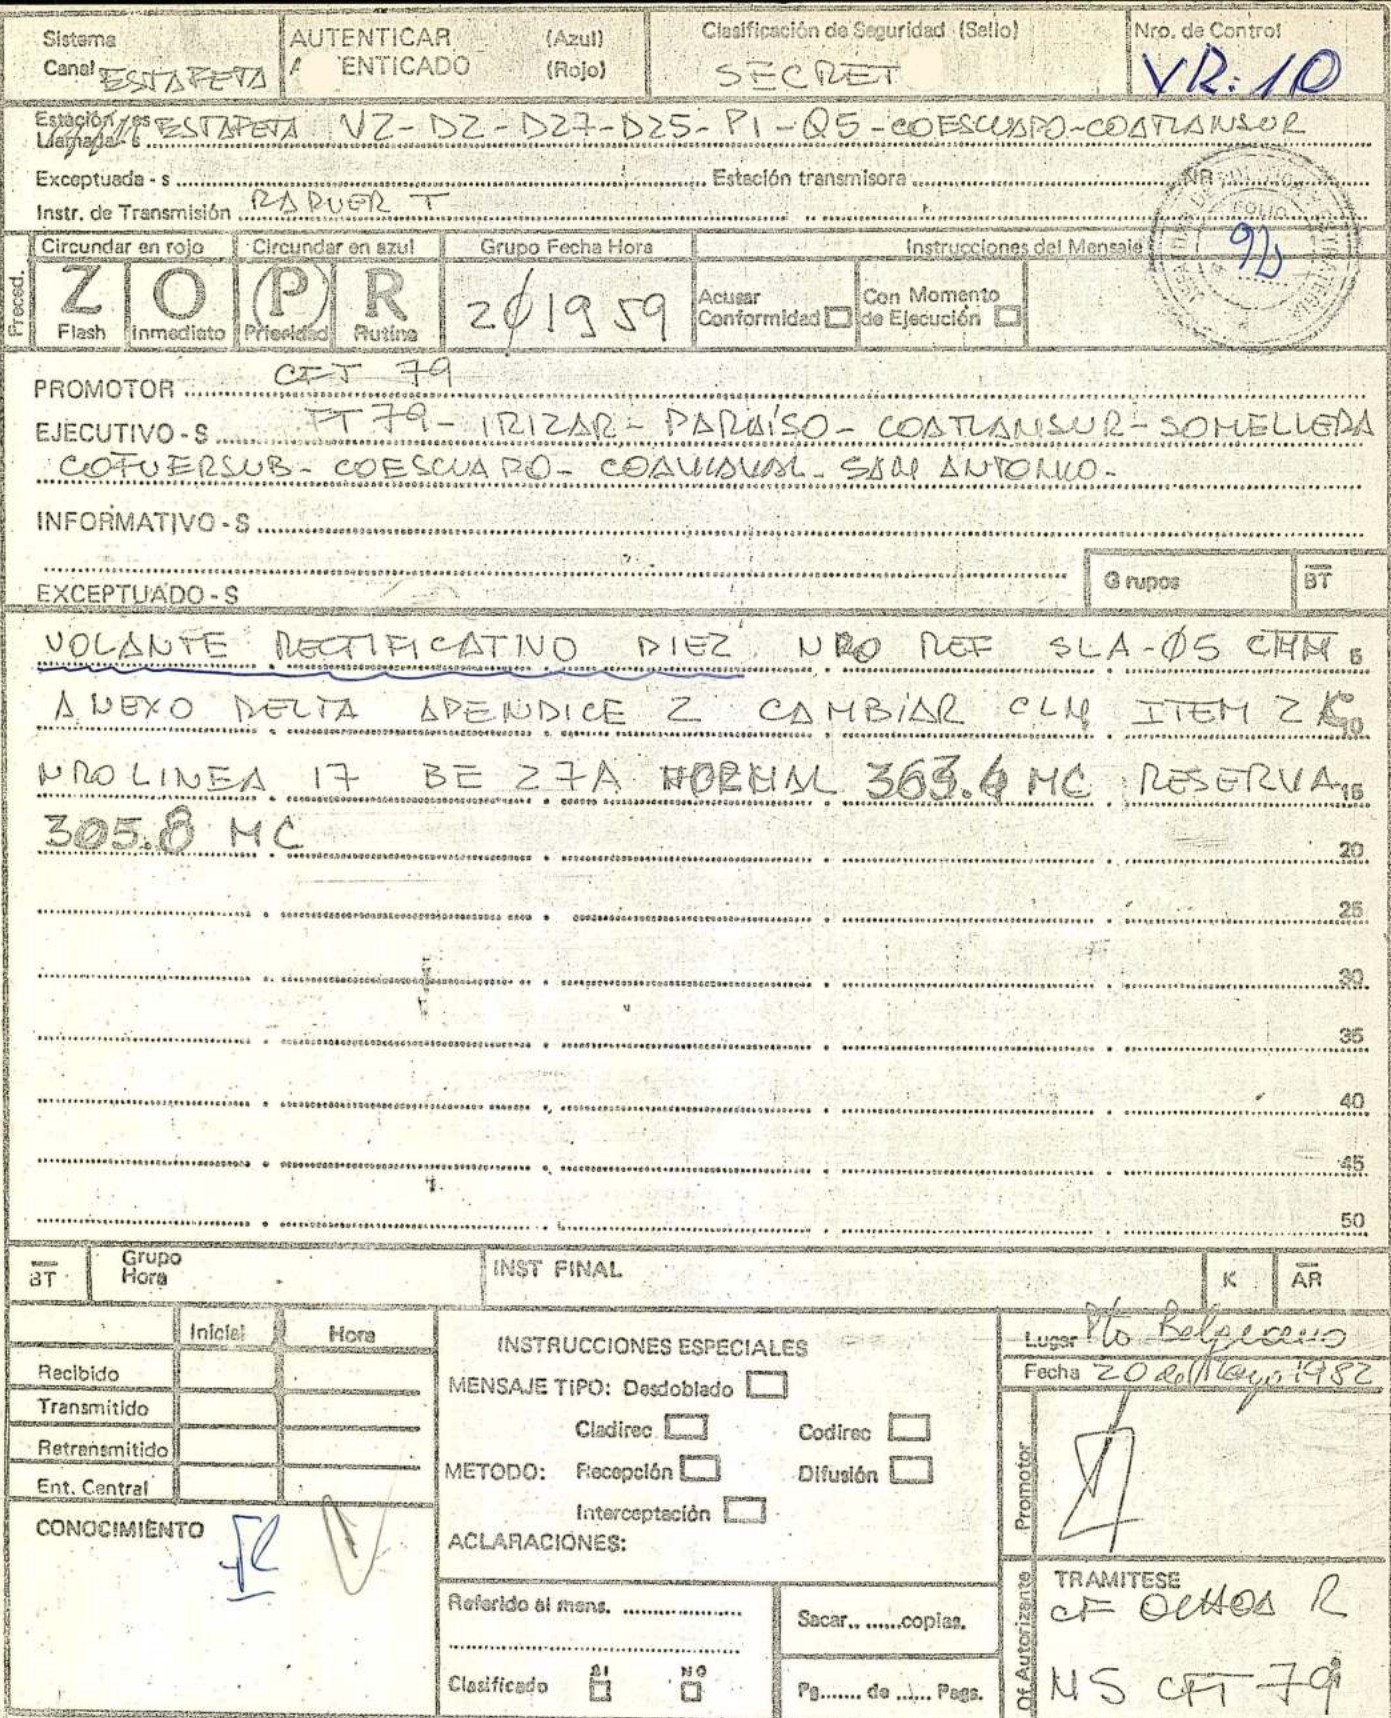 Sistema
Canal ESTAFETA
AUTENTICAR (Azul)
A ENTICADO (Rojo)
Clasificación de Seguridad (Sello)
SECRET
Nro. de Control
VR: 10
Estación - es
Llamada - s ESTAFETA V2 - D2 - D27 - D25 - P1 - Q5 - COESCUAPO - COATLANSUR
Exceptuada - s Estación transmisora NR
Instr. de Transmisión RAPUER T
FOLIO
92
Preced.
Circundar en rojo
Circundar en azul
Grupo Fecha Hora
Instrucciones del Mensaje
Z Flash
O Inmediato
P Prioridad
R Rutina
2Ø1959
Acusar
Conformidad
Con Momento
de Ejecución
PROMOTOR CFT 79
EJECUTIVO - S FT 79 - IRIZAR - PARAÍSO - COATLANSUR - SOMELLERA
COFUERSUB - COESCUAPO - COAVIANAL - SAN ANTONIO -
INFORMATIVO - S
EXCEPTUADO - S
Grupos
BT
VOLANTE RECTIFICATIVO DIEZ NRO REF SLA-Ø5 CHM 5
ANEXO DELTA APENDICE 2 CAMBIAR CLM ITEM 2 10
NRO LINEA 17 BE 27A NORMAL 363.4 MC RESERVA 15
305.8 MC 20
25
30
35
40
45
50
BT
Grupo
Hora
INST FINAL
K
AR
Inicial Hora
Recibido
Transmitido
Retransmitido
Ent. Central
CONOCIMIENTO
INSTRUCCIONES ESPECIALES
MENSAJE TIPO: Desdoblado
Cladirec Codirec
METODO: Recepción Difusión
Interceptación
ACLARACIONES:
Referido al mens.
Clasificado SI NO
Sacar copias.
Pg. de Pags.
Lugar Pto Belgrano
Fecha 20 de Mayo 1982
Promotor
Of Autorizante
TRAMITESE
CF OCHOA R
NS CFT 79